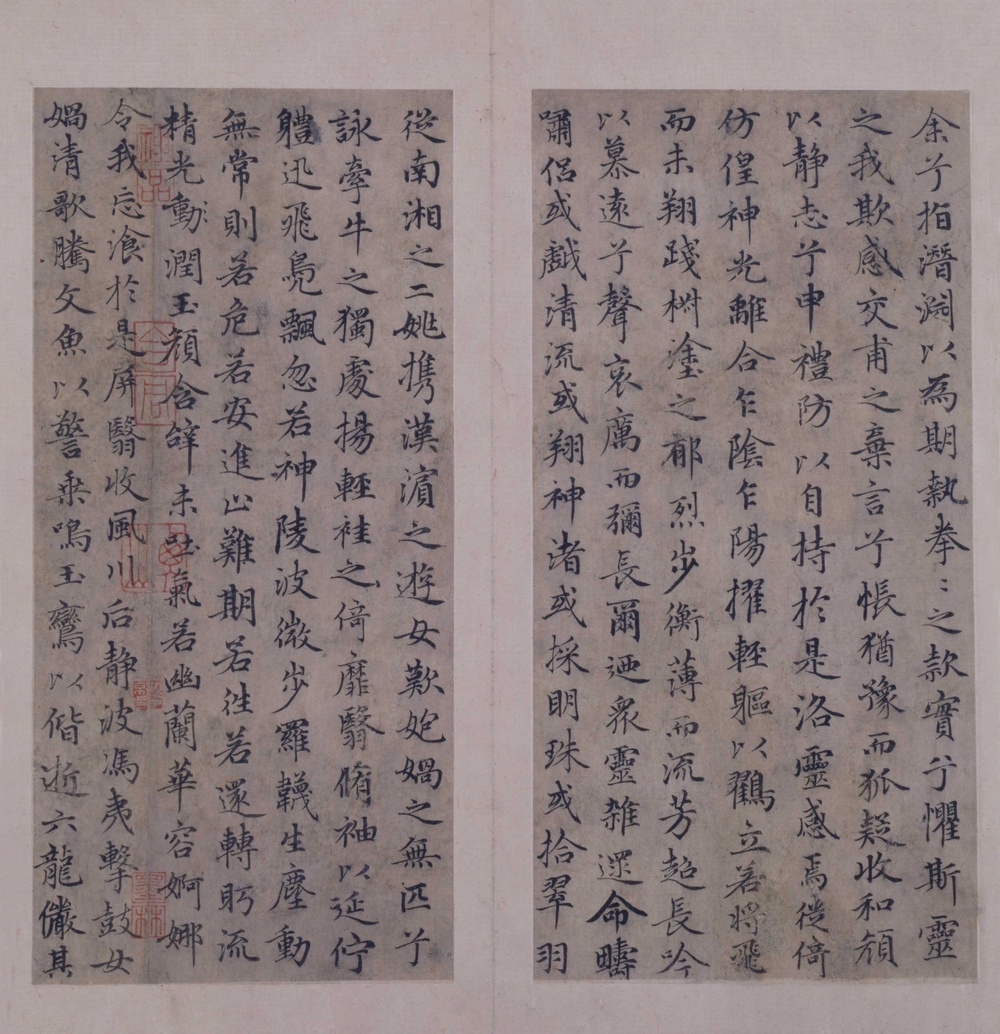 余兮指潛淵以為期執拳〻之款實兮懼斯靈
之我欺感交甫之棄言兮悵猶豫而狐疑收和顏
以静志兮申禮防以自持於是洛靈感焉徙倚
仿偟神光離合乍陰乍陽擢輕軀以鸖立若將飛
而未翔踐椒塗之郁烈步衡薄而流芳超長吟
以慕遠兮聲哀厲而彌長爾迺衆靈雜遝命疇
嘯侶或戲清流或翔神渚或採明珠或拾翠羽
從南湘之二姚攜漢濱之遊女歎妑媧之無匹兮
詠牽牛之獨處揚輕袿之倚靡翳脩袖以延佇
軆迅飛鳧飄忽若神陵波微步羅韈生塵動
無常則若危若安進止難期若往若還轉眄流
精光動潤玉顏含辞未吐氣若幽蘭華容婀娜
令我忘飡於是屏翳收風川后静波馮夷擊鼓女
媧清歌騰文魚以警乘鳴玉鸞以偕逝六龍儼其